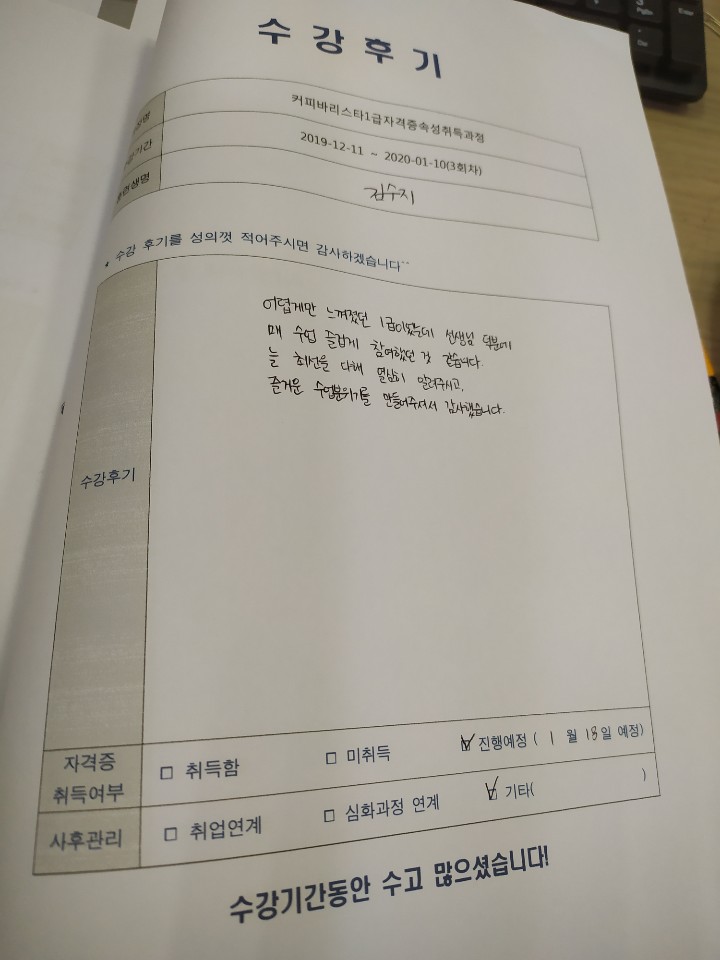 수 강 후 기
커피바리스타1급자격증속성취득과정
2019-12-11 ~ 2020-01-10(3회차)
김수지
* 수강 후기를 성의껏 적어주시면 감사하겠습니다^^
어렵게만 느껴졌던 1급이었는데 선생님 덕분에
매 수업 즐겁게 참여했던 것 같습니다.
늘 최선을 다해 열심히 알려주시고,
즐거운 수업분위기를 만들어주셔서 감사했습니다.
수강후기
자격증
취득여부
□ 취득함 □ 미취득 ☑ 진행예정 ( 1 월 18일 예정)
사후관리 □ 취업연계 □ 심화과정 연계 ☑ 기타( )
수강기간동안 수고 많으셨습니다!